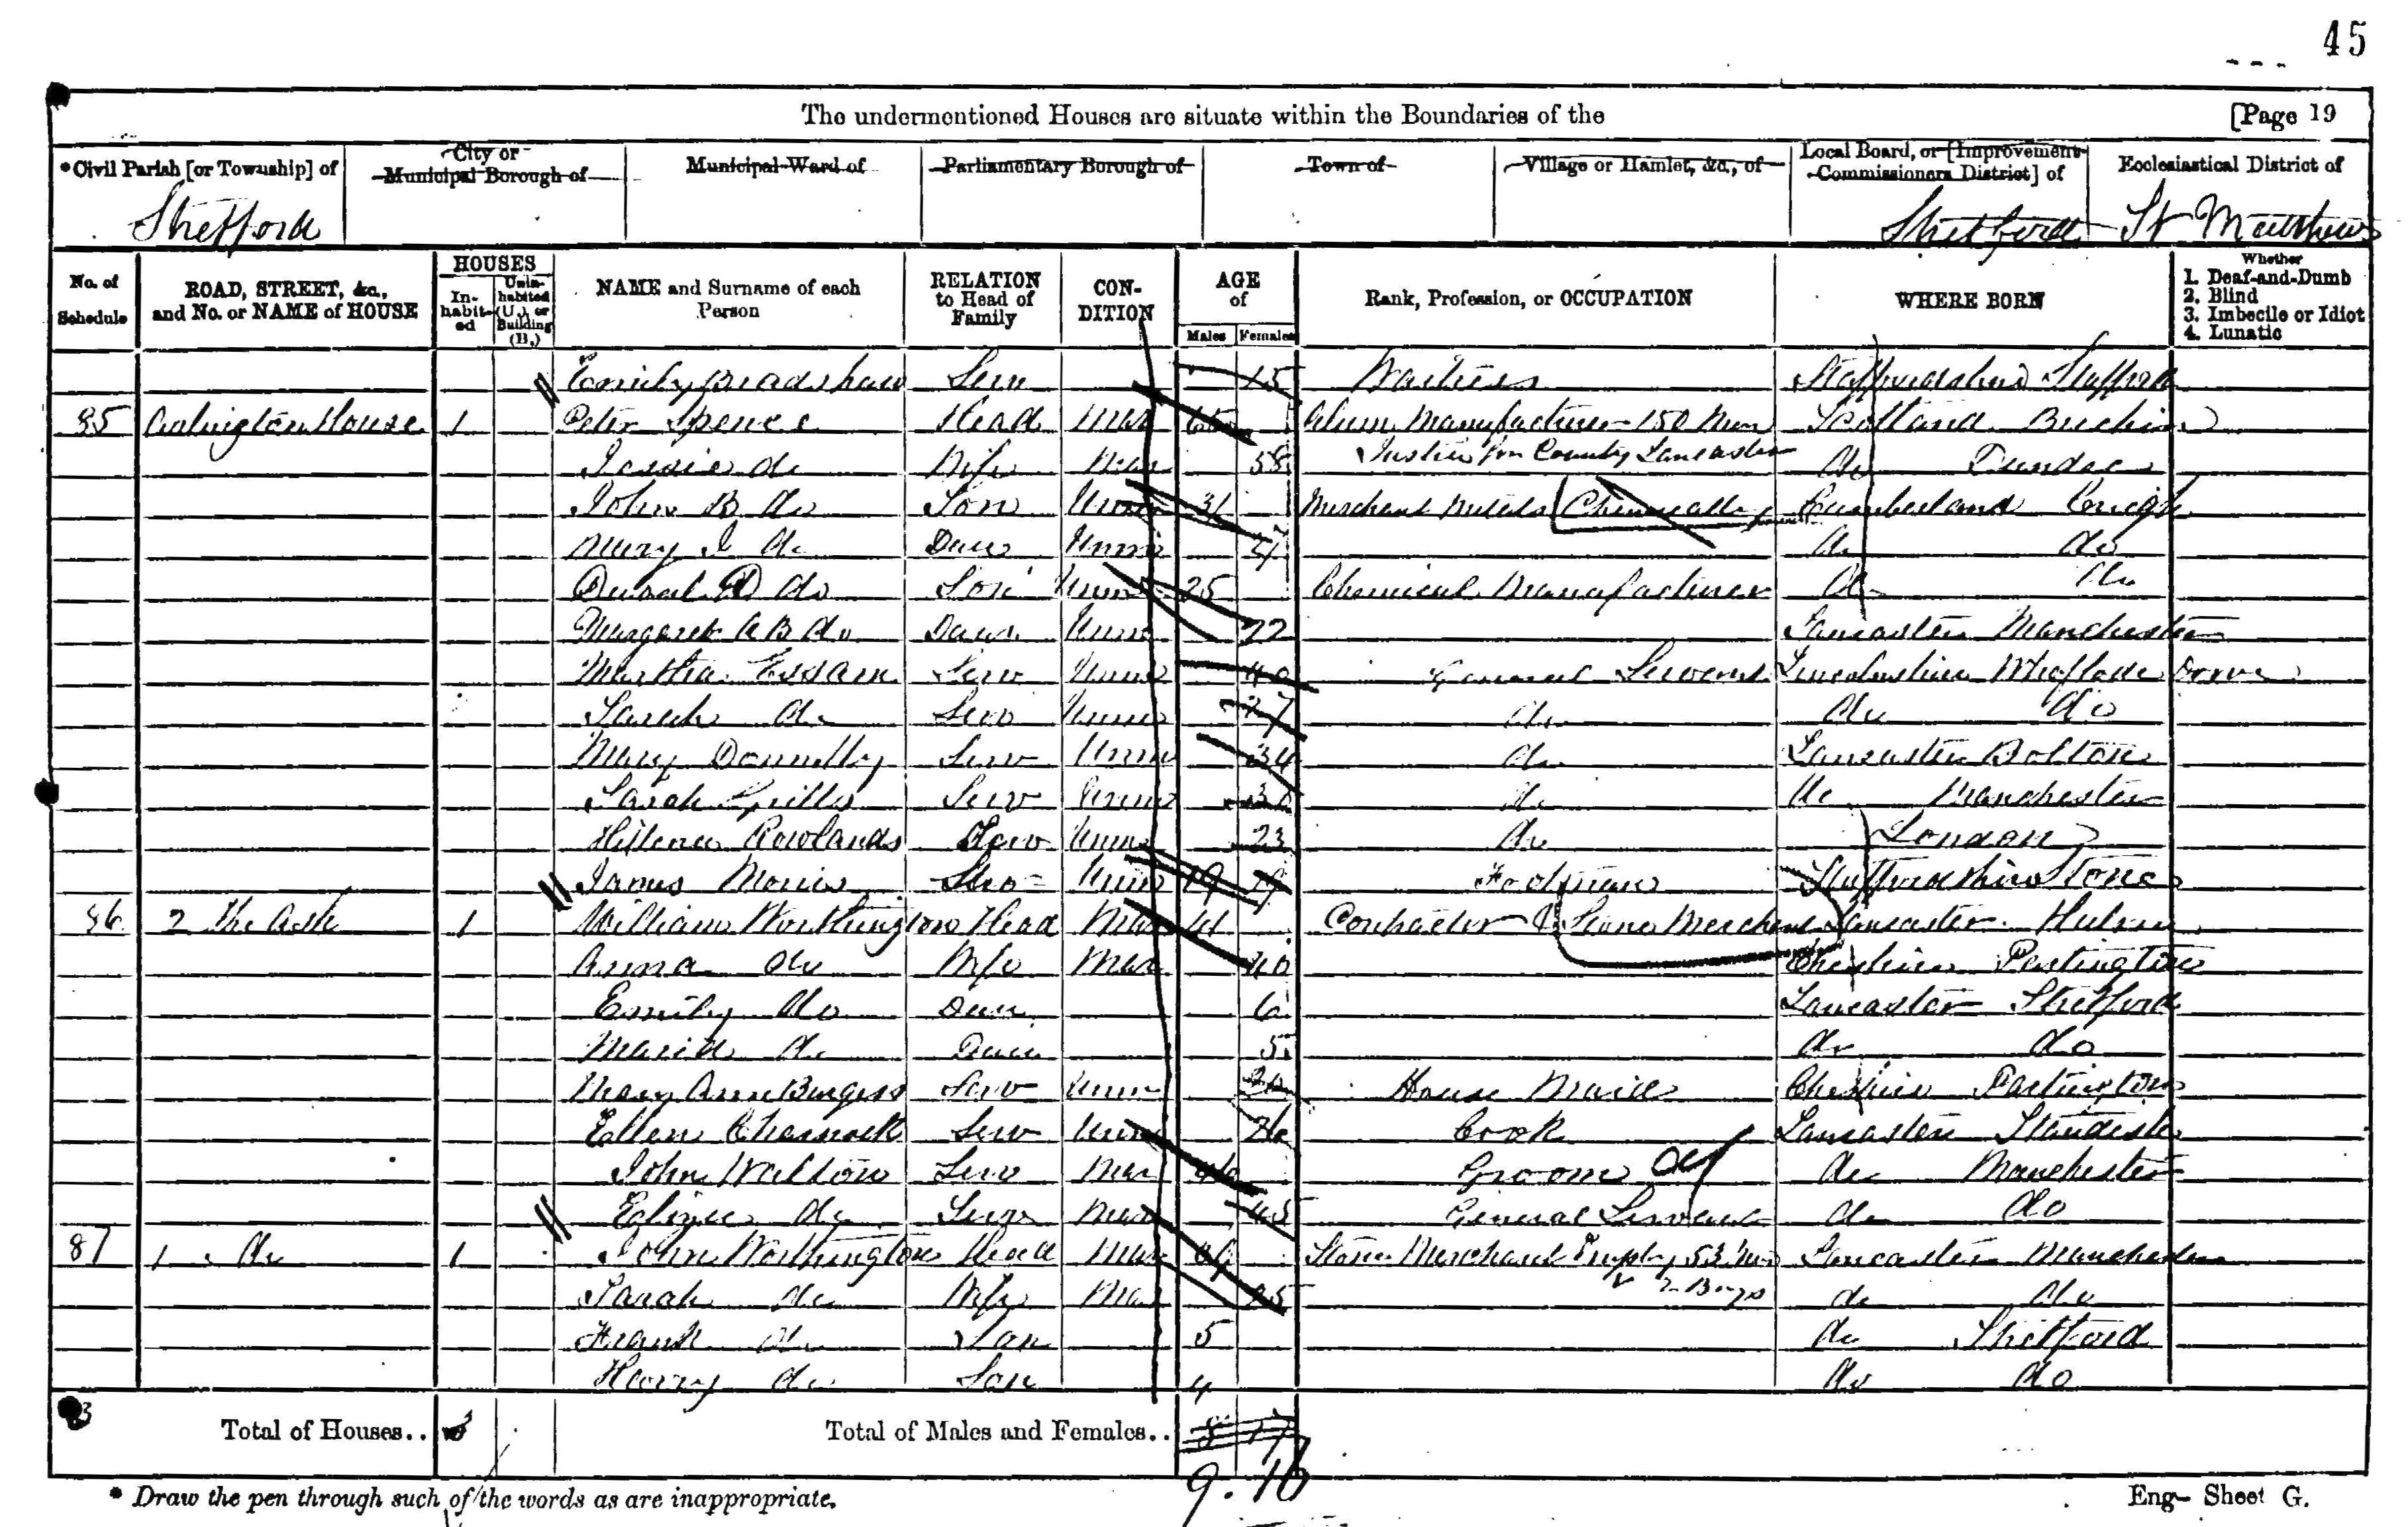 45
The undermentioned Houses are situate within the Boundaries of the [Page 19
*Civil Parish [or Township] of City or Municipal Borough of Municipal Ward of Parliamentary Borough of Town of Village or Hamlet, &c., of Local Board, or [Improvement Commissioners District] of Ecclesiastical District of
Stretford Stretford St Matthews
No. of Schedule ROAD, STREET, &c., and No. or NAME of HOUSE HOUSES Inhabited Uninhabited (U.), or Building (B.) NAME and Surname of each Person RELATION to Head of Family CONDITION AGE of Males Females Rank, Profession, or OCCUPATION WHERE BORN Whether 1. Deaf-and-Dumb 2. Blind 3. Imbecile or Idiot 4. Lunatic
Emily Bradshaw Serv 15 Waitress Staffordshire Stafford
85 House 1 Peter Spence Head Mar 65 Alum Manufacturer 150 Men Scotland Brechin
Jessie do Wife Mar 58 Justice for County Lancaster do Dundee
John B do Son Unm 31 Merchant Metals Chemically Cumberland
Mary J do Dau Unm do do
D do Son Unm 25 Chemical Manufacturer do do
Margaret A B do Daur Unm 22 Lancaster Manchester
Martha Essam Serv Unm 40 General Servant Lincolnshire Drove
Sarah do Serv Unm 27 do do do
Mary Donnelly Serv Unm 34 do Lancaster Bolton
Sarah Serv Unm do do Manchester
Rowlands Serv Unm 23 do London
James Morris Serv Unm 19 Footman Staffordshire Stone
86 2 The 1 William Worthington Head Mar 41 Contractor & Stone Merchant Lancaster Hulme
Anna do Wife Mar 40 Cheshire Partington
Emily do Dau 6 Lancaster Stretford
Maria do Dau 5 do do
Mary Ann Burgess Serv Unm House Maid Cheshire Partington
Ellen Charnock Serv Unm 26 Cook Lancaster Standish
John Walton Serv Mar Groom do Manchester
do Serv Mar 45 General Servant do do
87 1 do 1 John Worthington Head Mar Stone Merchant Employ 53 Men Lancaster Manchester
& 2 Boys
Sarah do Wife Mar 35 do do
Frank do Son 5 do Stretford
Harry do Son 4 do do
3 Total of Houses.. 3 Total of Males and Females.. 8 17
9. 16
* Draw the pen through such of the words as are inappropriate.
Eng- Sheet G.